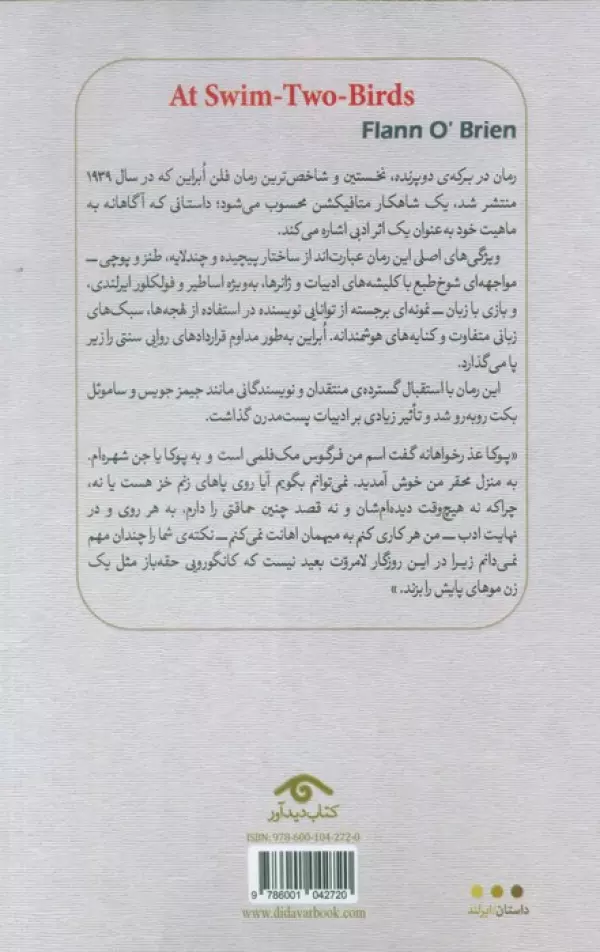 At Swim-Two-Birds
Flann O' Brien
رمان در برکه‌ی دوپرنده، نخستین و شاخص‌ترین رمان فلن اُبراین که در سال ۱۹۳۹
منتشر شد، یک شاهکار متافیکشن محسوب می‌شود؛ داستانی که آگاهانه به
ماهیت خود به‌عنوان یک اثر ادبی اشاره می‌کند.
ویژگی‌های اصلی این رمان عبارت‌اند از ساختار پیچیده و چندلایه، طنز و پوچی ــ
مواجهه‌ای شوخ‌طبع با کلیشه‌های ادبیات و ژانرها، به‌ویژه اساطیر و فولکلور ایرلندی،
و بازی با زبان ــ نمونه‌ای برجسته از توانایی نویسنده در استفاده از لهجه‌ها، سبک‌های
زبانی متفاوت و کنایه‌های هوشمندانه. اُبراین به‌طور مداوم قراردادهای روایی سنتی را زیر
پا می‌گذارد.
این رمان با استقبال گسترده‌ی منتقدان و نویسندگانی مانند جیمز جویس و ساموئل
بکت روبه‌رو شد و تأثیر زیادی بر ادبیات پست‌مدرن گذاشت.
«پوکا عذرخواهانه گفت اسم من فرگوس مک‌فلمی است و به پوکا یا جن شهره‌ام.
به منزل محقر من خوش آمدید. نمی‌توانم بگویم آیا روی پاهای زنم خز هست یا نه،
چراکه نه هیچ‌وقت دیده‌ام‌شان و نه قصد چنین حماقتی را دارم، به هر روی و در
نهایت ادب ــ من هر کاری کنم به میهمان اهانت نمی‌کنم ــ نکته‌ی شما را چندان مهم
نمی‌دانم زیرا در این روزگار لامروّت بعید نیست که کانگورویی حقه‌باز مثل یک
زن موهای پایش را بزند.»
کتاب دیدآور
ISBN: 978-600-104-272-0
9 786001 042720
www.didavarbook.com
داستان/ایرلند